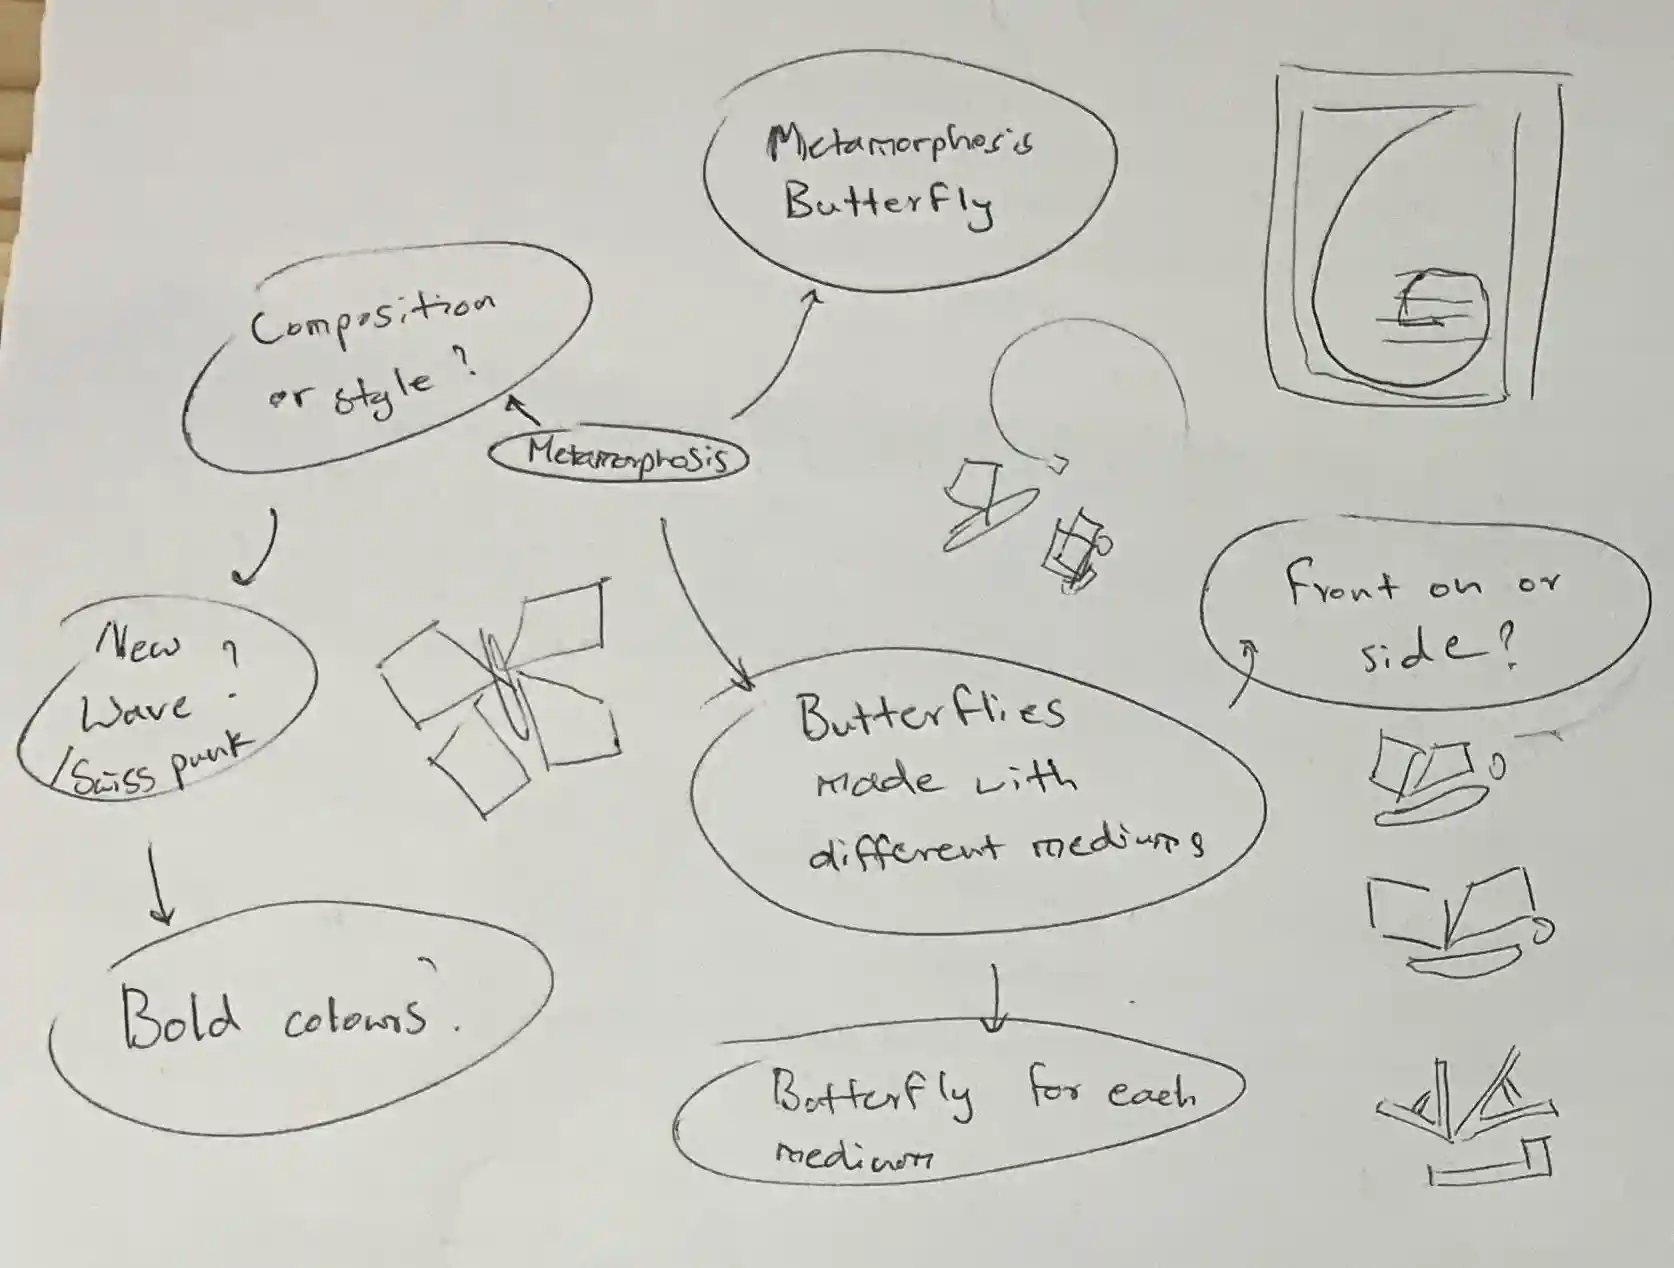 Metamorphosis
Butterfly
Composition
or style?
Metamorphosis
New
Wave?
/Swiss punk
Front on or
side?
Butterflies
made with
different mediums
Bold colours?
Butterfly for each
medium